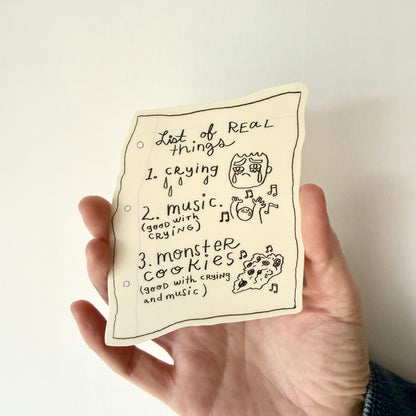 List of REAL
things
1. cRying
2. music.
(good with
CRYING)
3. monsteR
cookies
(good with cRying
and music)